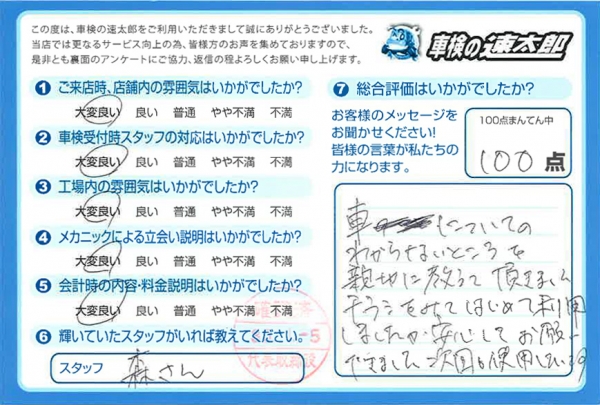 この度は、車検の速太郎をご利用いただきまして誠にありがとうございました。
当店では更なるサービス向上の為、皆様方のお声を集めておりますので、
是非とも裏面のアンケートにご協力、返信の程よろしくお願い申し上げます。
車検の速太郎
1 ご来店時、店舗内の雰囲気はいかがでしたか?
大変良い 良い 普通 やや不満 不満
2 車検受付時スタッフの対応はいかがでしたか?
大変良い 良い 普通 やや不満 不満
3 工場内の雰囲気はいかがでしたか?
大変良い 良い 普通 やや不満 不満
4 メカニックによる立会い説明はいかがでしたか?
大変良い 良い 普通 やや不満 不満
5 会計時の内容・料金説明はいかがでしたか?
大変良い 良い 普通 やや不満 不満
6 輝いていたスタッフがいれば教えてください。
スタッフ 森さん
確認済
代表取締役
7 総合評価はいかがでしたか?
お客様のメッセージを
お聞かせください!
皆様の言葉が私たちの
力になります。
100点まんてん中
100点
車 についての
わからないところを
親切に教えて頂きました
チラシをみてはじめて利用
しましたが安心してお願い
できました。次回も使用したい